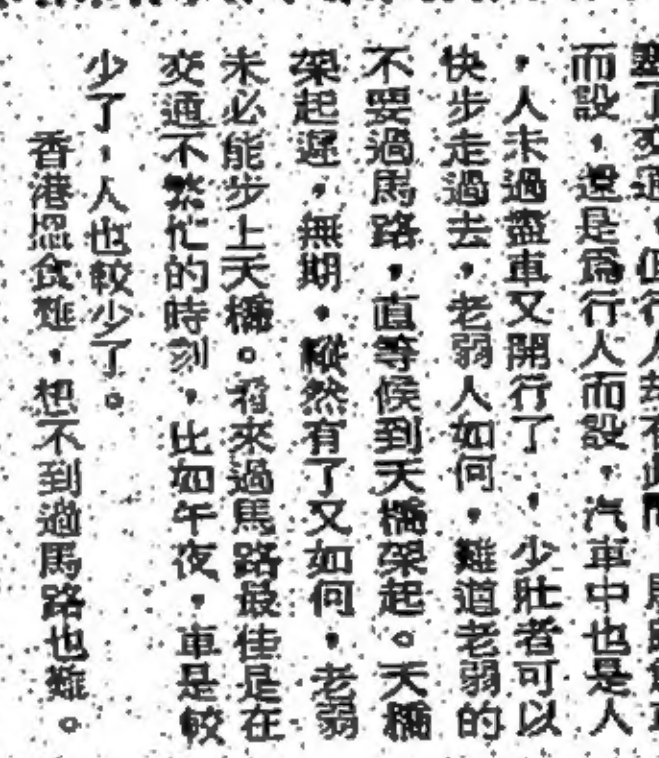 塞了交通，但行人却有此問
而設，還是為行人而設，汽車中也是人
，人未過盡車又開行了，少壯者可以
快步走過去，老弱人如何，難道老弱的
不要過馬路，直等候到天橋架起。天橋
架起遲，無期，縱然有了又如何，老弱
未必能步上天橋。看來過馬路最佳是在
交通不繁忙的時刻，比如午夜，車是較
少了，人也較少了。
香港搵食難，想不到過馬路也難。